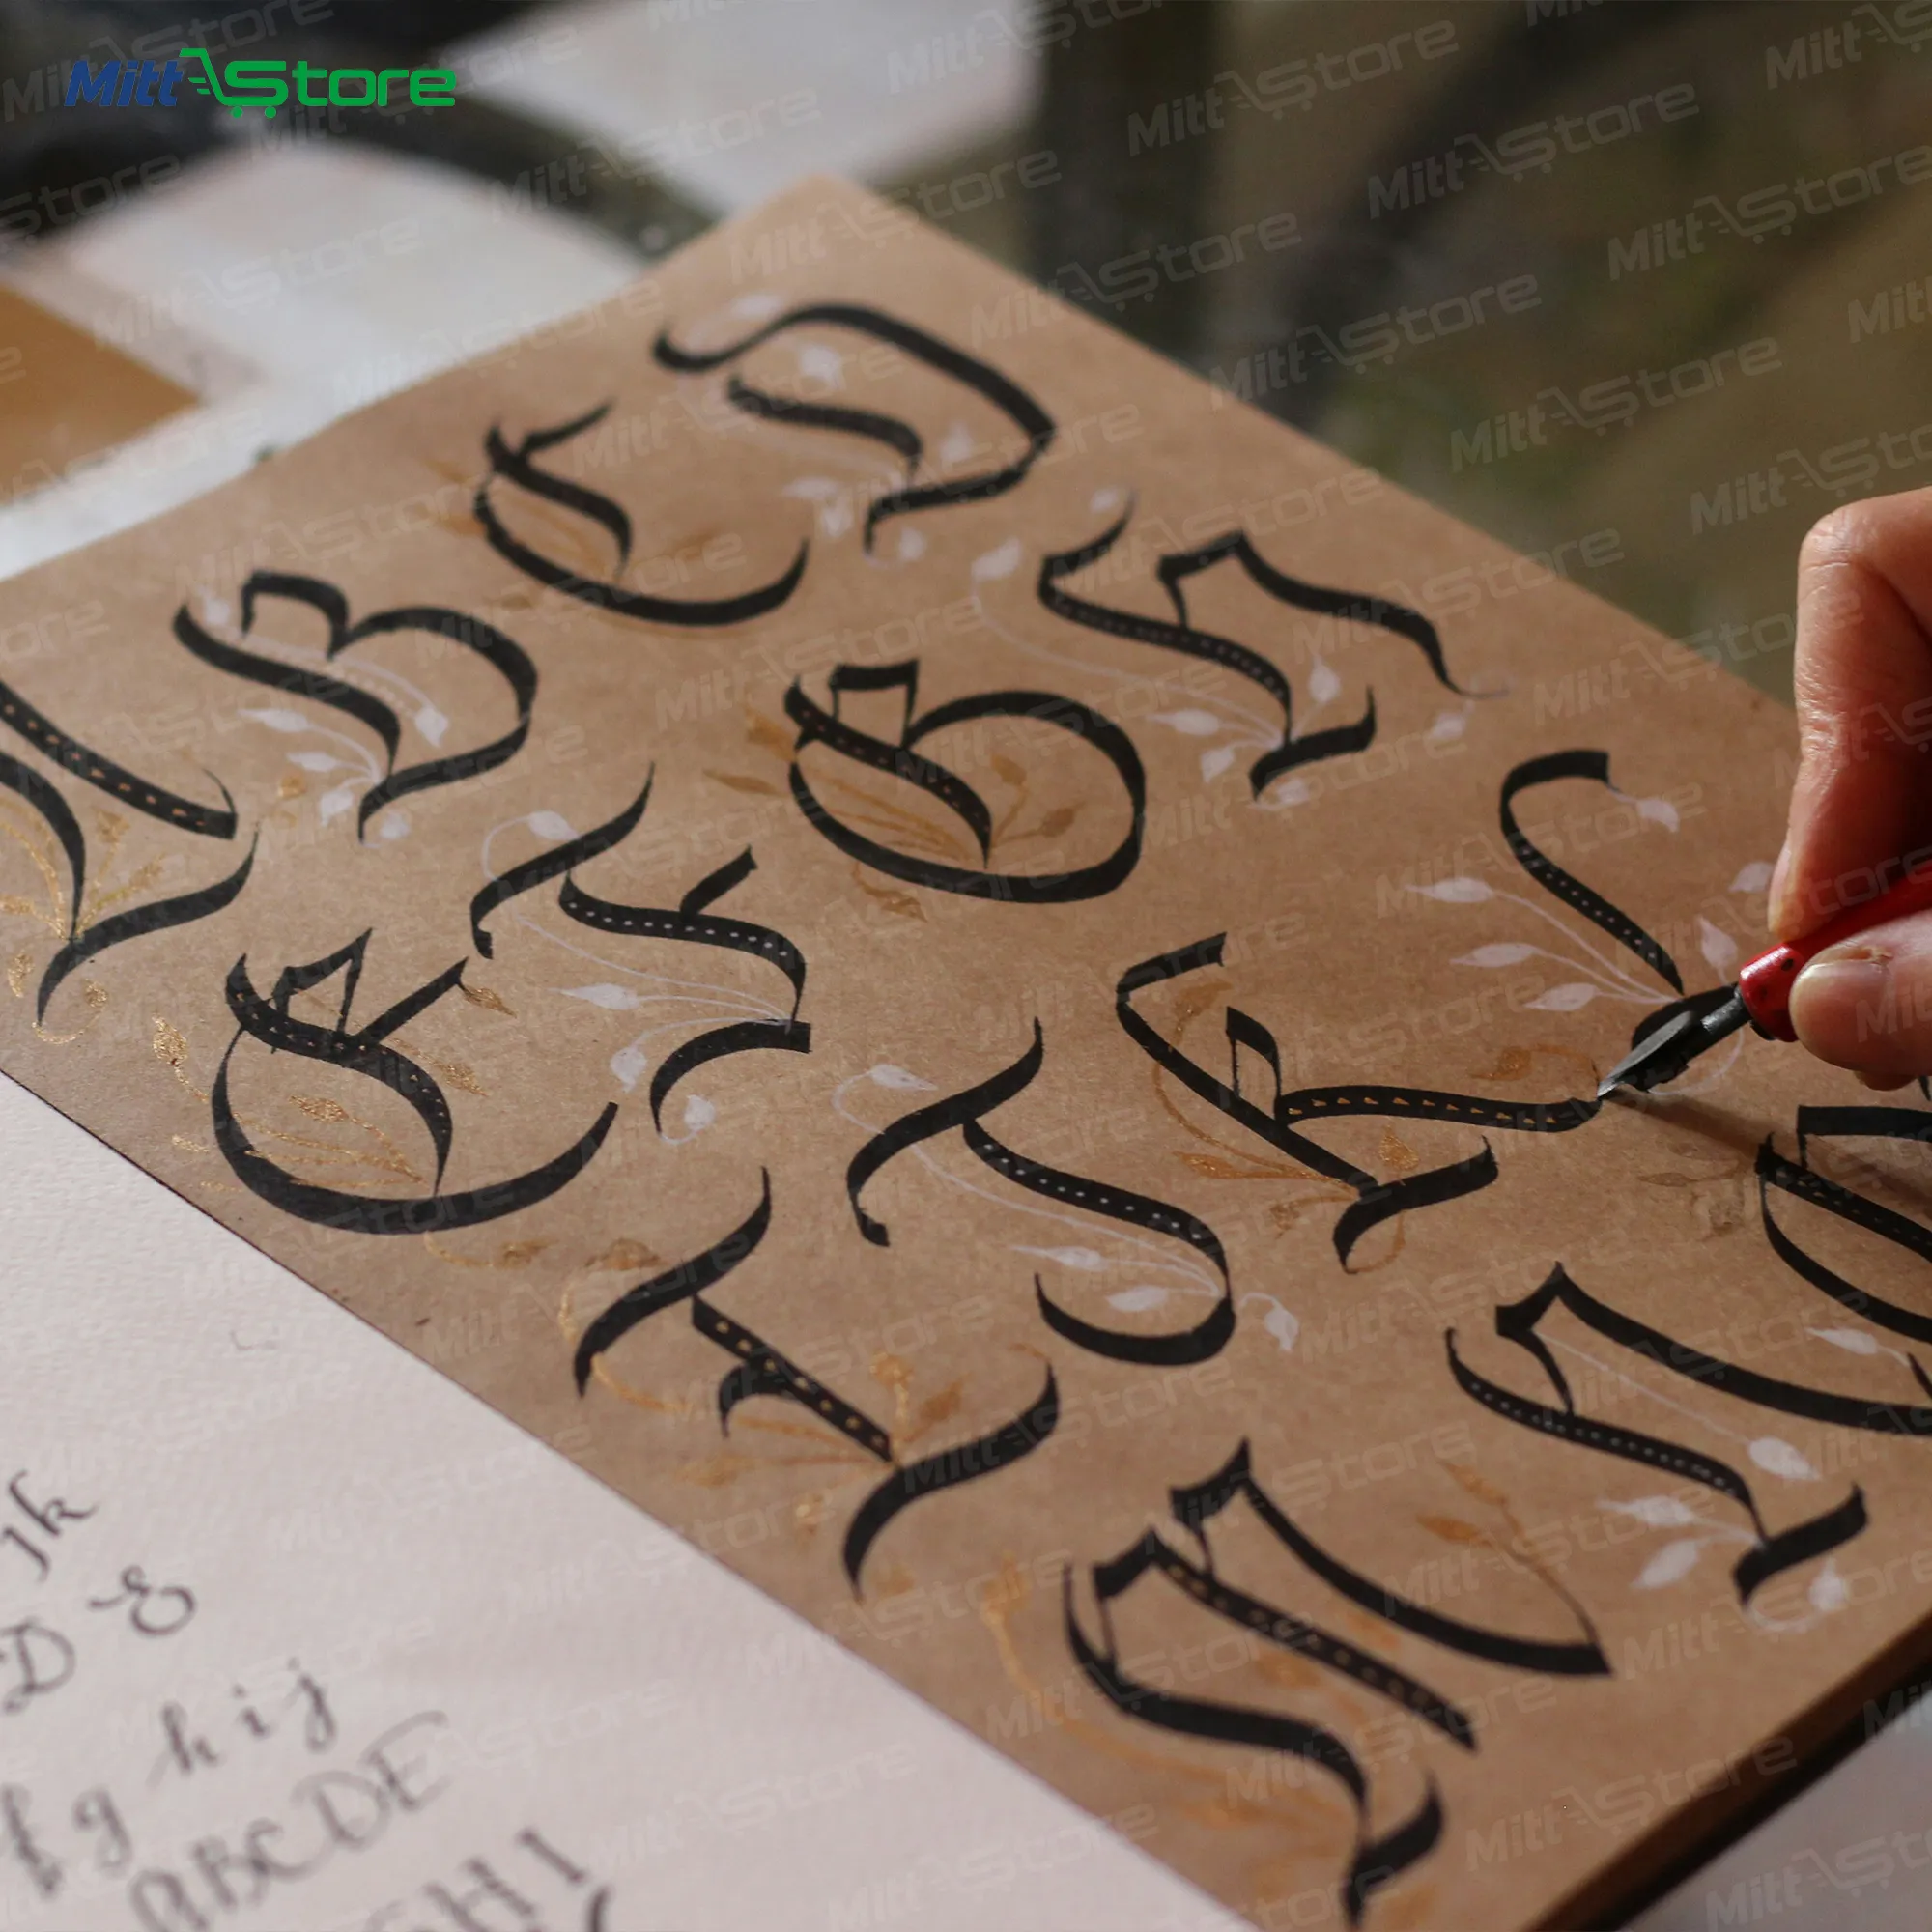 Mitt Store
A B C D
E F G H
I J K L
M N O
jk
D E
f g h i j
ABCDE
GHI